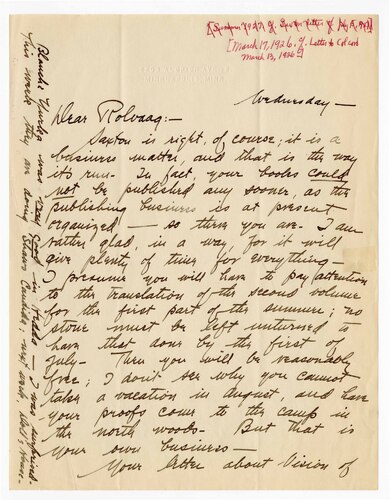 [March 17, 1926. cf. Letter to Colcord
March 13, 1926]
Wednesday —
Dear Rolvaag: —
Saxton is right, of course; it is a
business matter, and that is the way
it's run. In fact, your books could
not be published any sooner, as the
publishing business is at present
organized — so there you are. I am
rather glad, in a way, for it will
give plenty of time for everything —
I presume you will have to pay attention
to the translation of the second volume
for the first part of the summer; no
stone must be left unturned to
have that done by the first of
July — Then you will be reasonably
free; I don't see why you cannot
take a vacation in August, and have
your proofs come to the camp in
the north woods. But that is
your own business —
Your letter about Vision of
Blanche Yurka was very good in Hedda — I was surprised.
This week they are doing Shaw's Candida; next week, Doll's House —